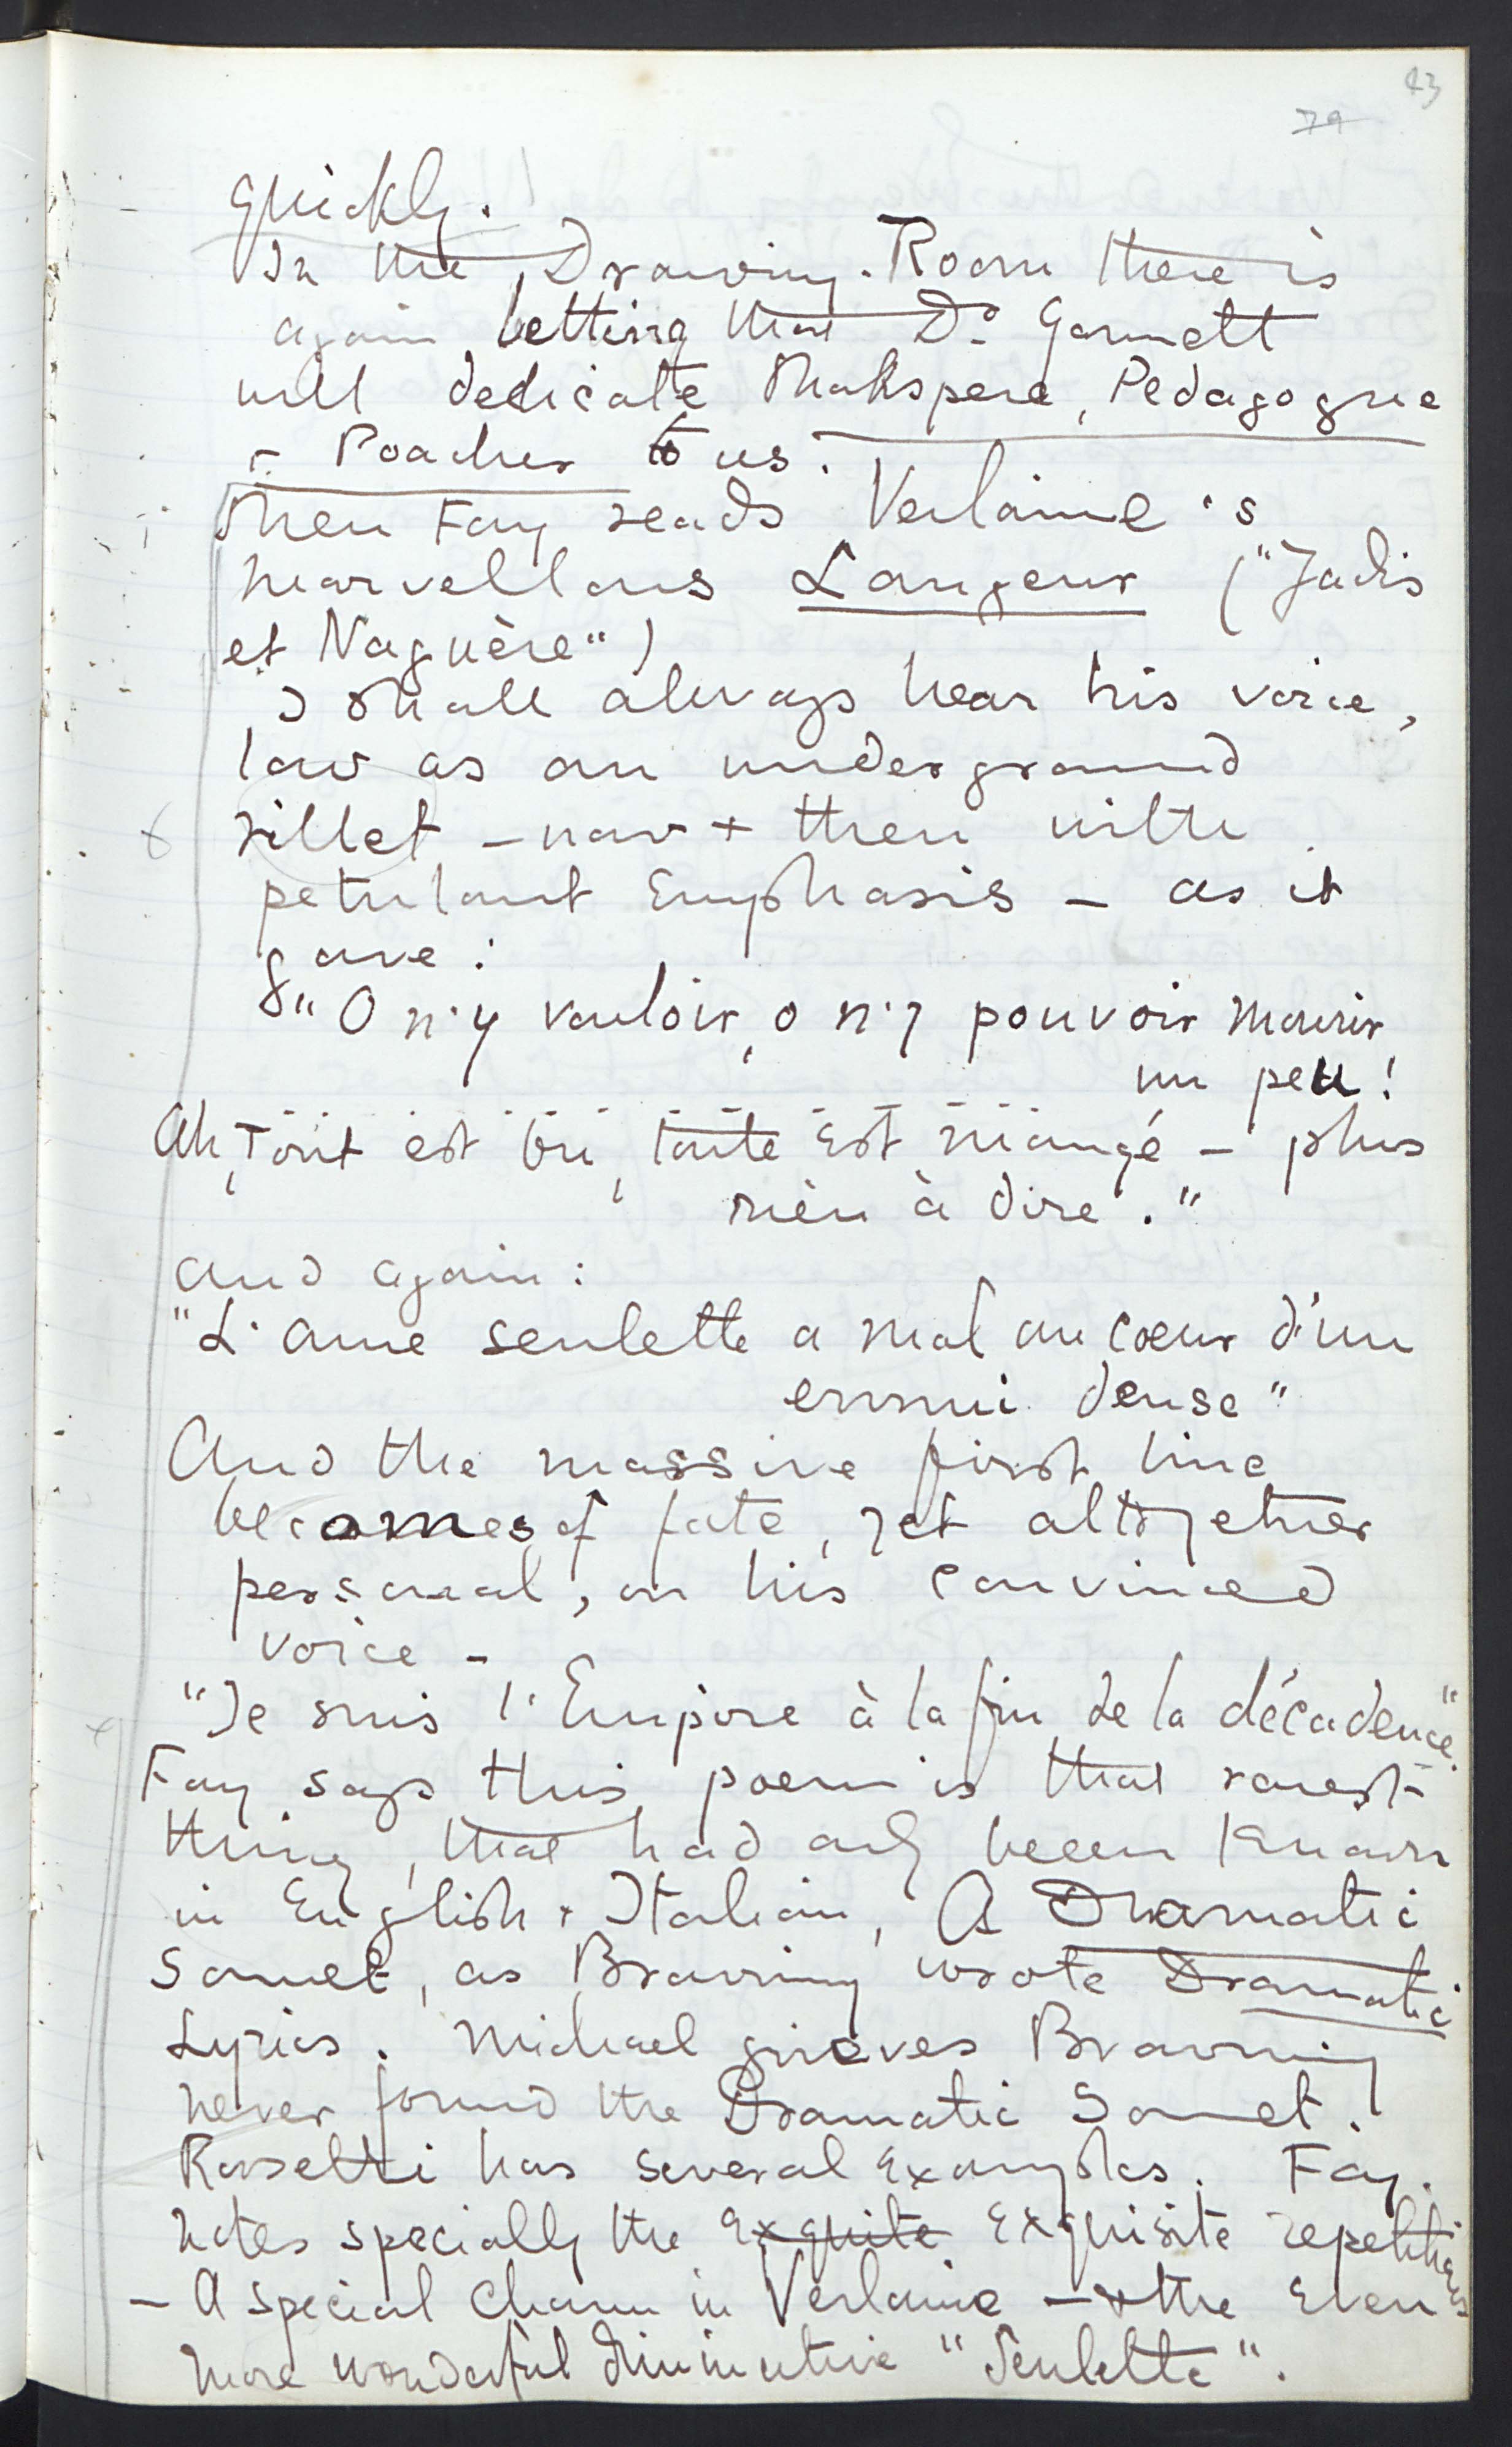 43
79
quickly.
In the Drawing-Room there is
again betting that Dr Garnett
will dedicate Shakspere, Pedagogue
& Poacher to us.
Then Fay reads Verlaine's
marvellous Langeur ("Jadis
et Naguère")
I shall always hear his voice,
low as an underground
rillet – now + then with
petulant Emphasis – as it
gave:
"O n'y vouloir, o n'y pouvoir mourir
un peu!
Ah, Tout est bu, toute Est mangé – plus
rièn à dire."
and again:
"L'ame seulette a mal au coeur d'un
ennui dense"
And the massive first line
becomes of fate, yet altogether
personal, on his convinced
voice –
"Je suis l'Empire à la fin de la décadence."
Fay says this poem is that rarest
thing, that had only been Known
in English & Italian, A Dramatic
Sonnet, as Browning wrote Dramatic
Lyrics. Michael grieves Browning
never found the Dramatic Sonnet.
Rossetti has several Examples. Fay.
notes specially the Exquite Exquisite repetitions
– A special Charm in Verlaine – & the Even
more wonderful diminutive "Seulette".